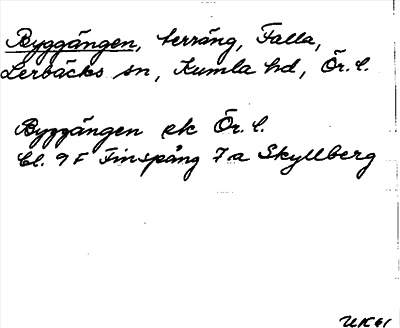 Byggängen, terräng, Falla,
Lerbäcks sn, Kumla hd, Ör. l.
Byggängen ek Ör. l.
bl. 9F Finspång 7a Skyllberg
UK61